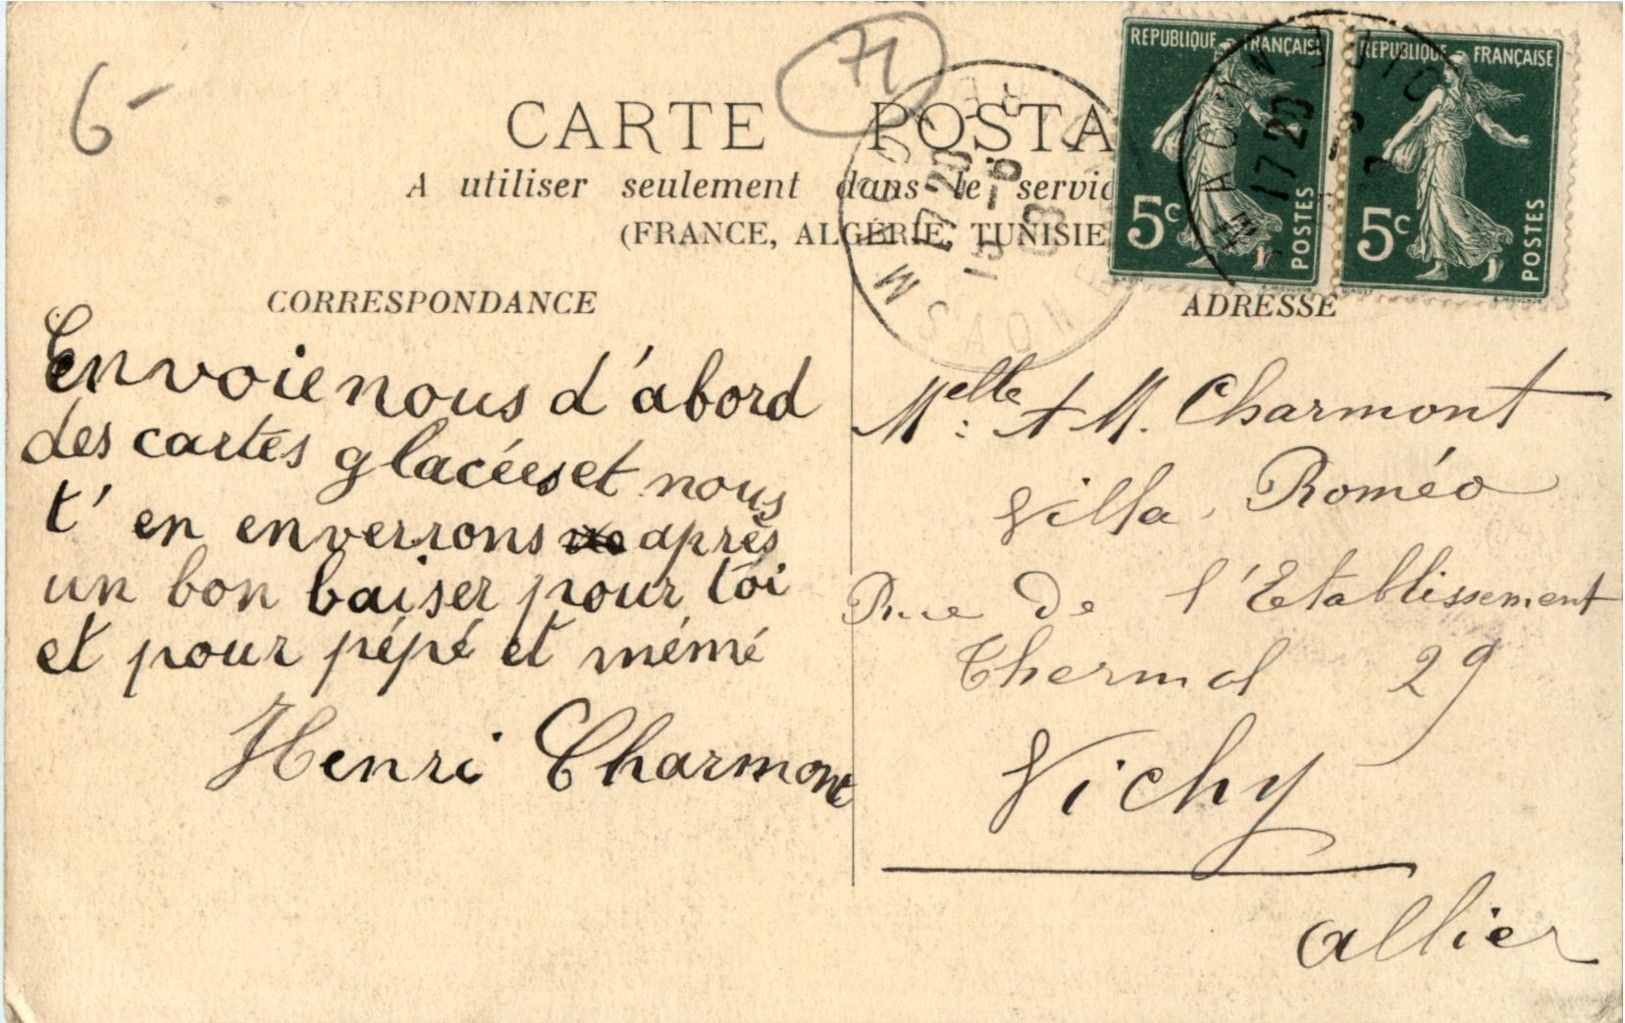 6-
71
CARTE POSTA
A utiliser seulement dans le servic
(FRANCE, ALGÉRIE, TUNISIE
REPUBLIQUE FRANÇAISE
5c
POSTES
REPUBLIQUE FRANÇAISE
5c
POSTES
MACON
17 20
17 20
15 - 8
08
CORRESPONDANCE
Envoie nous d'abord
des cartes glacées et nous
t' en enverrons après
un bon baiser pour toi
et pour pépé et mémé
Henri Charmont
ADRESSE
Melle: A M. Charmont
Villa Roméo
Rue de l'Etablissement
Thermal 29
Vichy
Allier